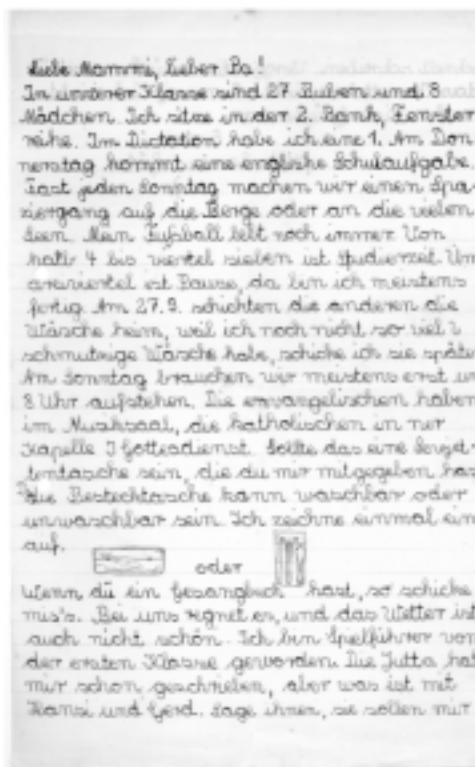 Liebe Mammi, Lieber Pa!
In unserer Klasse sind 27 Buben und 8
Mädchen. Ich sitze in der 2. Bank, Fenster
reihe. Im Dictation habe ich eine 1. Am Don
nerstag kommt eine englische Schulaufgabe.
Fast jeden Sonntag machen wir einen Spa-
ziergang auf die Berge oder an die vielen
Seen. Mein Fußball lebt noch immer. Von
halb 4 bis viertel sieben ist Studierzeit. Um
dreiviertel ist Pause, da bin ich meistens
fertig. Am 27.9. schickten die anderen die
Wäsche heim, weil ich noch nicht so viel
schmutzige Wäsche habe, schicke ich sie späte
Am Sonntag brauchen wir meistens erst um
8 Uhr aufstehen. Die evangelischen haben
im Musiksaal, die katholischen in ner
Kapelle Gottesdienst. Sollte das eine
tentasche sein, die du mir mitgegeben has
Die Bestecktasche kann waschbar oder
unwaschbar sein. Ich zeichne einmal ein
auf.
oder
Wenn du ein Gesangbuch hast, so schicke
mis's. Bei uns regnet es, und das Wetter ist
auch nicht schön. Ich bin Spielführer von
der ersten Klasse geworden. Die Jutta hat
mir schon geschrieben, aber was ist mit
Hansi und Gerd. Sage ihnen, sie sollen mir